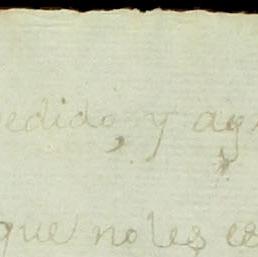 pedido, y ag
que no les es